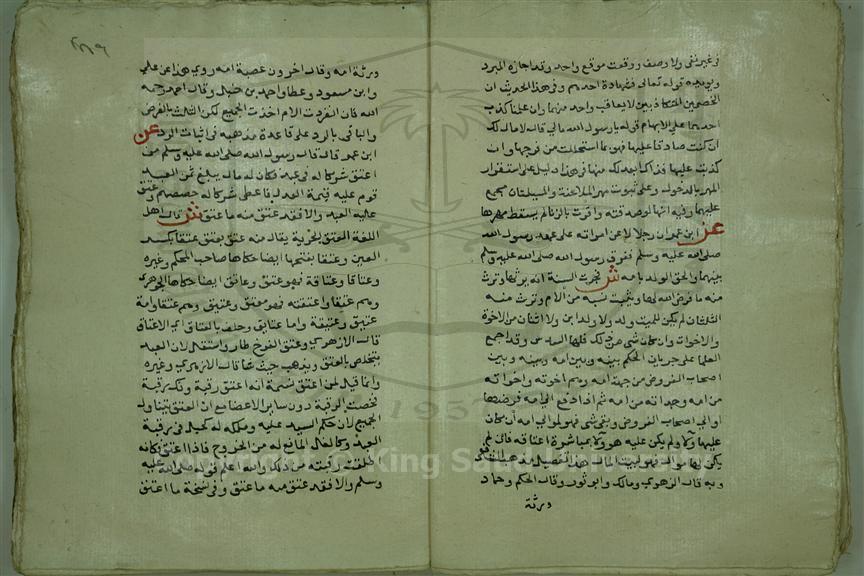 في غير نفي ولا وصف ووقعت موقع واحد وقد اجازه المبرد
ويويده قوله تعالى فشهادة احدهم وفي هذا الحديث ان
الخصمين المتكاذبين لا يعاقب واحد منهما وان علمنا كذب
احدهما على الابهام قوله يا رسول الله مالي قال لا مال لك
ان كنت صادقا عليها فهو بما استحللت من فرجها وان
كذبت عليها فذاك ابعد لك منها في هذا دليل على استقرار
المهر بالدخول وعلى ثبوت مهر الملاعنة والمسيلتان مجمع
عليهما وفيه انها لو صدقته واقرت بالزنا لم يسقط مهرها
عن ابن عمر ان رجلا لاعن امراته على عهد رسول الله
صلى الله عليه وسلم ففرق رسول الله صلى الله عليه وسلم
بينهما والحق الولد بامه ش جرت السنة انه يرثها وترث
منه ما فرض الله لها ويثبت نسبه من الام وترث منه
الثلث ان لم يكن للميت ولد ولا ولد ابن ولا اثنان من الاخوة
والاخوات وان كان شي من ذلك فلها السدس وقد اجمع
العلما على جريان الحكم بينه وبين امه وبينه وبين
اصحاب الفروض من جهة امه وهم اخوته واخواته
من امه وجداته من امه ثم اذا دفع الى امه فرضها
او الى اصحاب الفروض وبقي شي فهو لموالي امه ان كان
عليها ولا ولم يكن عليه هو ولا بمباشرة اعتاقه فان لم
يكن لها موال فهو لبيت المال هذا تفصيل مذهب الشافعي
وبه قال الزهري ومالك وابو ثور وقال الحكم وحماد
ورثة
ورثة امه وقال اخرون عصبة امه روي هذا عن علي
وابن مسعود وعطا واحمد بن حنبل وقال احمد رحمه
الله فان انفردت الام اخذت الجميع لكن الثلث بالفرض
والباقي بالرد على قاعدة مذهبه في اثبات الرد عن
ابن عمر قال قال رسول الله صلى الله عليه وسلم من
اعتق شركا له في عبد فكان له مال يبلغ ثمن العبد
قوم عليه قيمة العدل فاعطي شركاه حصصهم وعتق
عليه العبد والا فقد عتق منه ما عتق ش قال اهل
اللغة العتق الحرية يقال منه عتق يعتق عتقا بكسر
العين وعتقا بفتحها ايضا حكاها صاحب المحكم وغيره
وعتاقا وعتاقة فهو عتيق وعاتق ايضا حكاها الجوهري
وهم عتقا واعتقته فهو معتق وعتيق وهم عتقا وامة
عتيق وعتيقة واما عتايق وحلف بالعتاق اي الاعتاق
قال الازهري وعتق الفرخ طار واستقل لان العبد
يتخلص بالعتق ويذهب حيث شا قال الازهري وغيره
وانما قيل لمن اعتق نسمة انه اعتق رقبة وفك رقبة
فخصت الرقبة دون ساير الاعضا مع ان العتق يتناول
الجميع لان حكم السيد عليه وملكه له كحبل في رقبة
العبد وكالغل المانع له من الخروج فاذا اعتق فكانه
اطلقت رقبته من ذلك والله اعلم قوله صلى الله عليه
وسلم والا فقد عتق منه ما عتق وفي نسخة ما اعتق
Copyright © King Saud University
1957